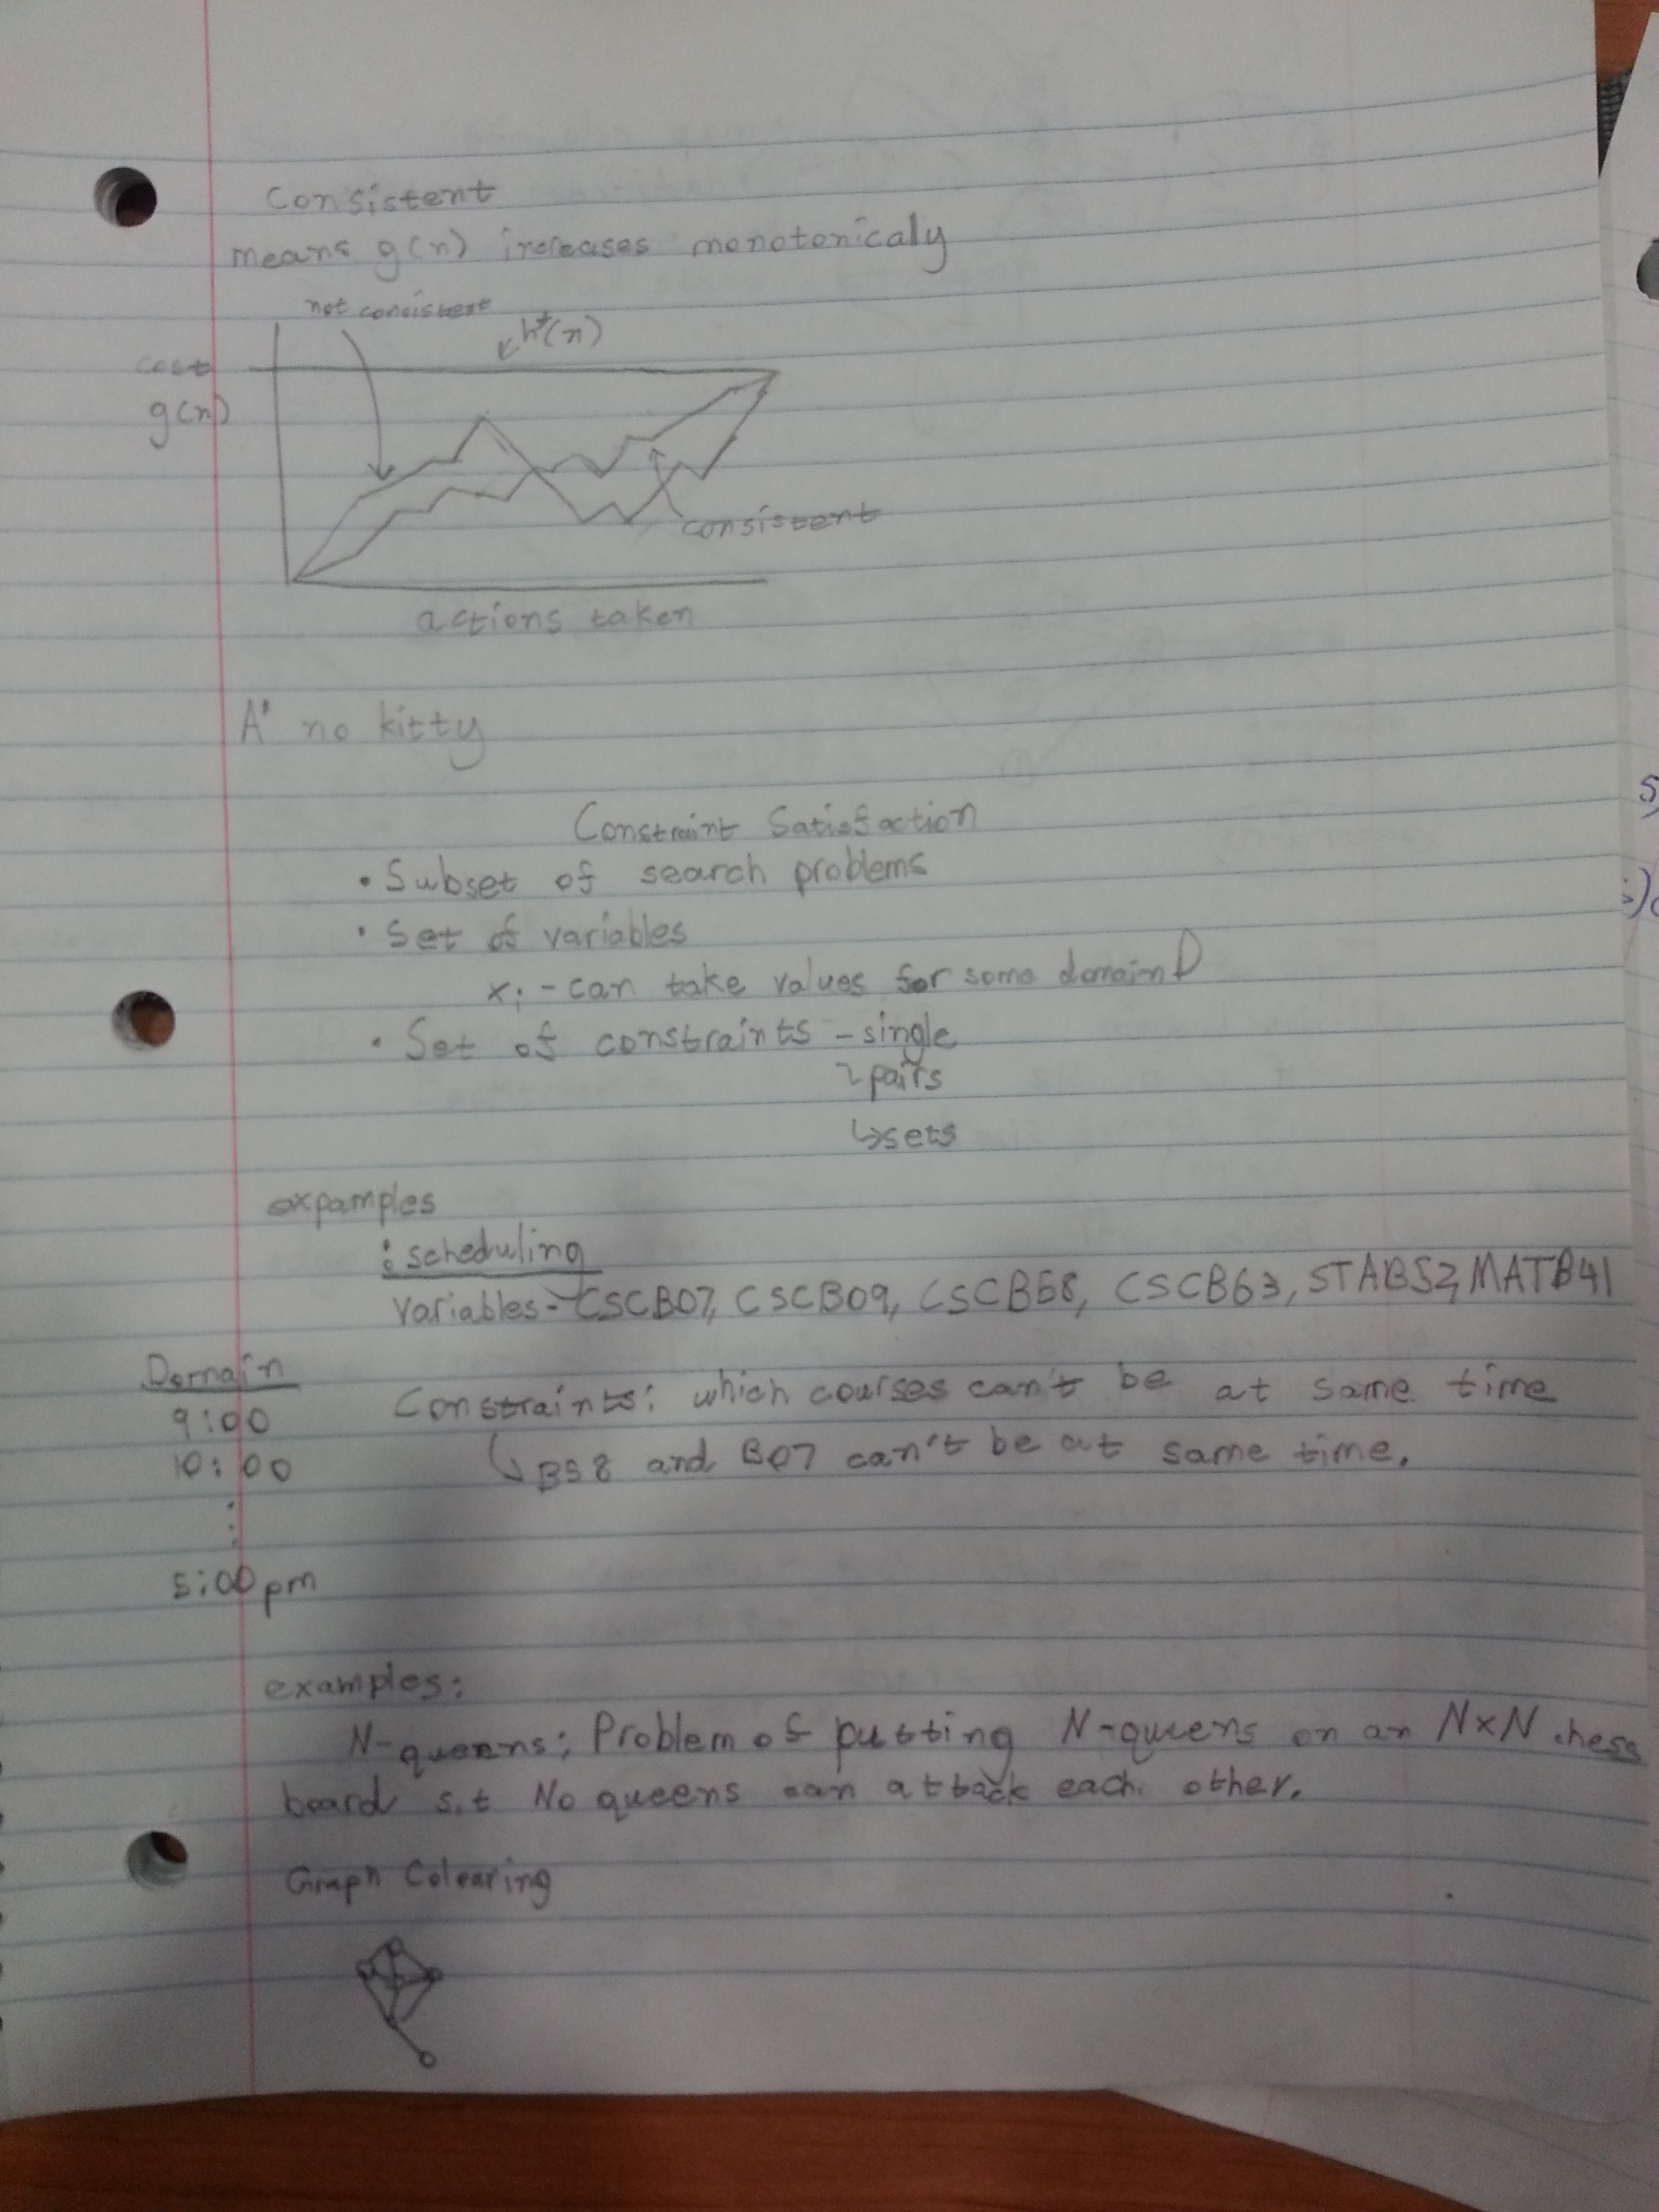 Consistent
means g(n) increases monotonicaly
not consistent
h*(n)
cost
g(n)
consistent
actions taken
A* no kitty
Constraint Satisfaction
• Subset of search problems
• Set of variables
xi - can take values for some domain D
• Set of constraints - single
pairs
↳ sets
expamples
: scheduling
variables - CSCB07, CSCB09, CSCB58, CSCB63, STAB52, MATB41
Domain
9:00
10:00
⋮
5:00pm
Constraints: which courses can't be at same time
↳ B58 and B07 can't be at same time.
examples:
N-queens: Problem of putting N-queens on an NxN chess
board s.t No queens can attack each other.
Graph Colearing